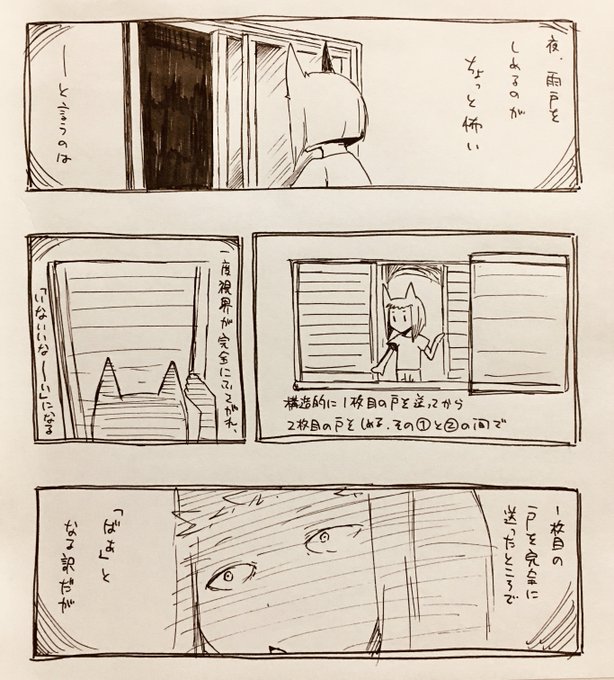 夜、雨戸を
しめるのが
ちょっと怖い
ーと言うのは
構造的に1枚目の戸を送ってから
2枚目の戸をしめる、その①と②の間で
一度視界が完全にふさがれ、
「いないいなーい」になる
1枚目の
戸を完全に
送ったところで
「ばぁ」と
なる訳だが